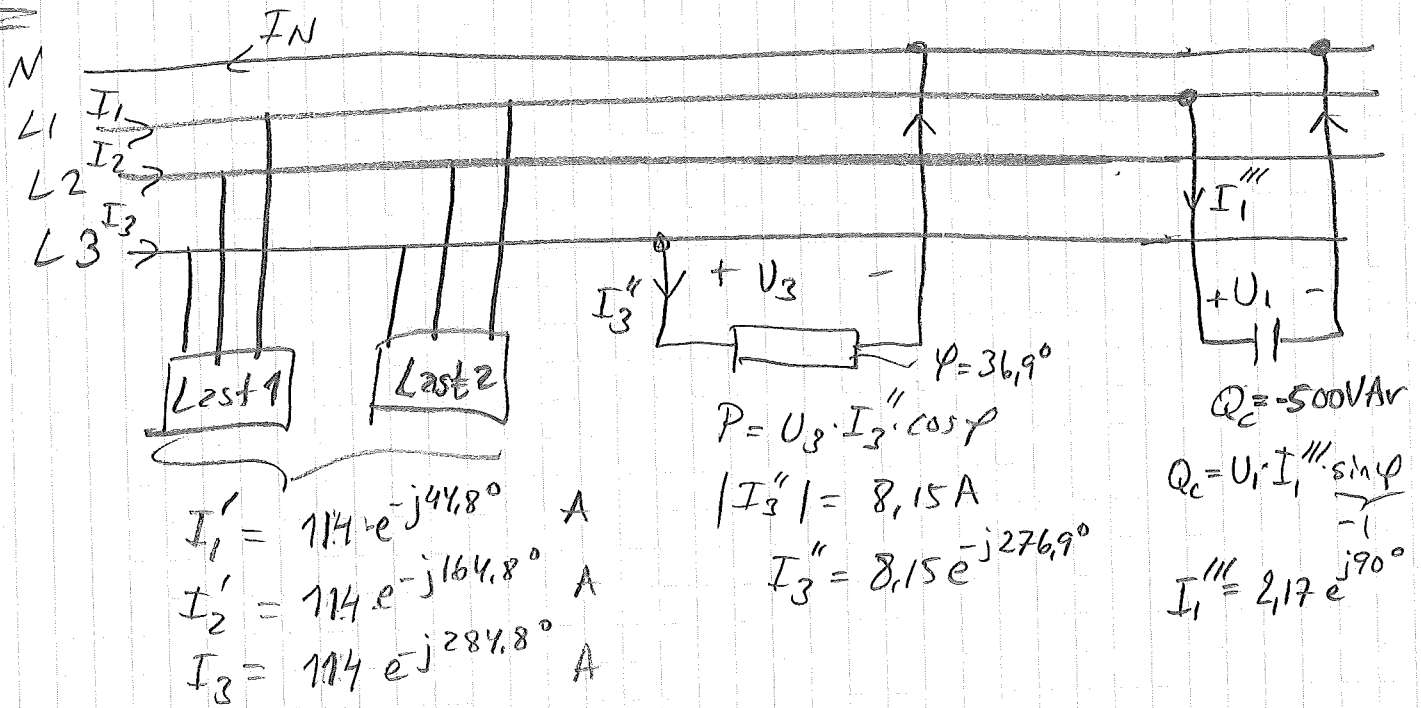 N
I_N
L1 I_1
L2 I_2
L3 I_3
Last 1
Last 2
I_3''
+ U_3 -
φ=36,9°
P = U_3·I_3''·cosφ
|I_3''| = 8,15 A
I_3'' = 8,15 e^{-j276,9°}
I_1'''
+ U_1 -
Q_c = -500VAr
Q_c = U_1·I_1'''·sinφ
-1
I_1''' = 2,17 e^{j90°}
I_1' = 11,4·e^{-j44,8°} A
I_2' = 11,4 e^{-j164,8°} A
I_3 = 11,4 e^{-j284,8°} A